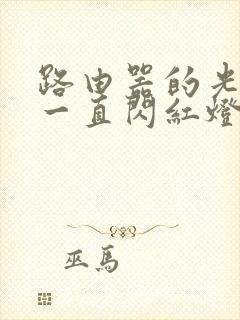 路由器的光
一直閃紅燈
巫馬